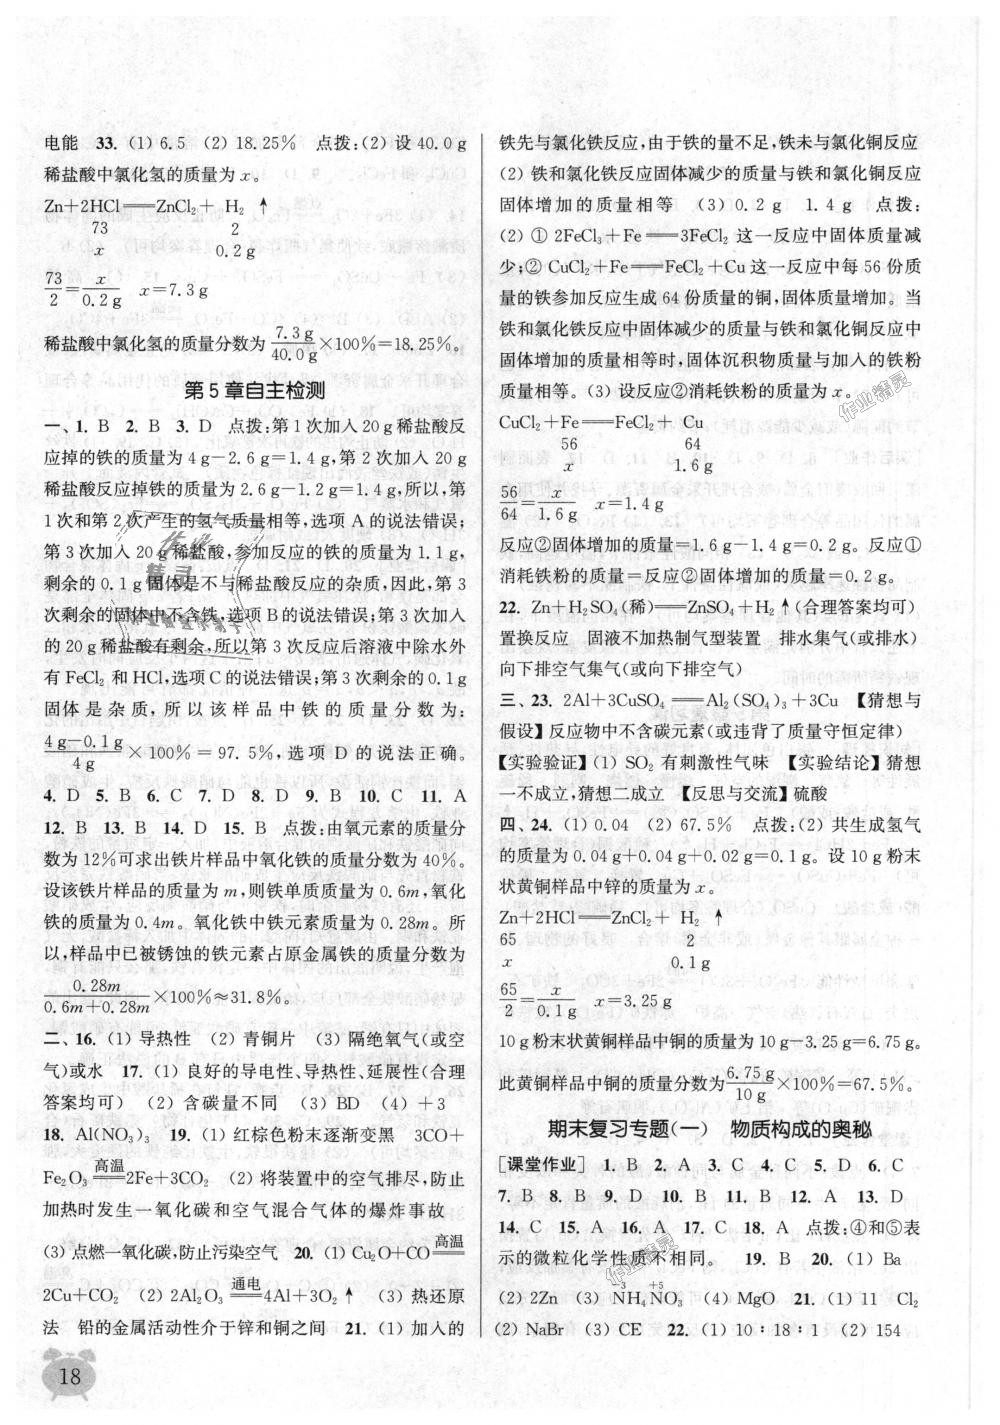 电能 33. (1) 6.5 (2) 18.25% 点拨:(2) 设 40.0 g
稀盐酸中氯化氢的质量为 x。
Zn+2HCl══ZnCl₂+ H₂ ↑
73 2
x 0.2 g
73/2=x/0.2 g x=7.3 g
稀盐酸中氯化氢的质量分数为 7.3 g/40.0 g×100%=18.25%。
第 5 章自主检测
一、1. B 2. B 3. D 点拨:第 1 次加入 20 g 稀盐酸反
应掉的铁的质量为 4 g-2.6 g=1.4 g,第 2 次加入 20 g
稀盐酸反应掉铁的质量为 2.6 g-1.2 g=1.4 g,所以,第
1 次和第 2 次产生的氢气质量相等,选项 A 的说法错误;
第 3 次加入 20 g 稀盐酸,参加反应的铁的质量为 1.1 g,
剩余的 0.1 g 固体是不与稀盐酸反应的杂质,因此,第 3
次剩余的固体中不含铁,选项 B 的说法错误;第 3 次加入
的 20 g 稀盐酸有剩余,所以第 3 次反应后溶液中除水外
有 FeCl₂ 和 HCl,选项 C 的说法错误;第 3 次剩余的 0.1 g
固体是杂质,所以该样品中铁的质量分数为:
4 g-0.1 g/4 g×100% = 97.5%,选项 D 的说法正确。
4. D 5. B 6. C 7. D 8. D 9. B 10. C 11. A
12. B 13. B 14. D 15. B 点拨:由氧元素的质量分
数为 12%可求出铁片样品中氧化铁的质量分数为 40%。
设该铁片样品的质量为 m,则铁单质质量为 0.6m,氧化
铁的质量为 0.4m。氧化铁中铁元素质量为 0.28m。所
以,样品中已被锈蚀的铁元素占原金属铁的质量分数为
0.28m/0.6m+0.28m×100%≈31.8%。
二、16. (1) 导热性 (2) 青铜片 (3) 隔绝氧气(或空
气)或水 17. (1) 良好的导电性、导热性、延展性(合理
答案均可) (2) 含碳量不同 (3) BD (4) +3
18. Al(NO₃)₃ 19. (1) 红棕色粉末逐渐变黑 3CO+
Fe₂O₃ 高温══ 2Fe+3CO₂ (2) 将装置中的空气排尽,防止
加热时发生一氧化碳和空气混合气体的爆炸事故
(3) 点燃一氧化碳,防止污染空气 20. (1) Cu₂O+CO 高温══
2Cu+CO₂ (2) 2Al₂O₃ 通电══ 4Al+3O₂ ↑ (3) 热还原
法 铅的金属活动性介于锌和铜之间 21. (1) 加入的
铁先与氯化铁反应,由于铁的量不足,铁未与氯化铜反应
(2) 铁和氯化铁反应固体减少的质量与铁和氯化铜反应
固体增加的质量相等 (3) 0.2 g 1.4 g 点拨:
(2) ① 2FeCl₃+Fe══3FeCl₂ 这一反应中固体质量减
少;② CuCl₂+Fe══FeCl₂+Cu 这一反应中每 56 份质
量的铁参加反应生成 64 份质量的铜,固体质量增加。当
铁和氯化铁反应中固体减少的质量与铁和氯化铜反应中
固体增加的质量相等时,固体沉积物质量与加入的铁粉
质量相等。(3) 设反应②消耗铁粉的质量为 x。
CuCl₂+Fe══FeCl₂+ Cu
56 64
x 1.6 g
56/64=x/1.6 g x=1.4 g
反应②固体增加的质量=1.6 g-1.4 g=0.2 g。反应①
消耗铁粉的质量=反应②固体增加的质量=0.2 g。
22. Zn+H₂SO₄(稀)══ZnSO₄+H₂ ↑(合理答案均可)
置换反应 固液不加热制气型装置 排水集气(或排水)
向下排空气集气(或向下排空气)
三、23. 2Al+3CuSO₄══Al₂(SO₄)₃+3Cu 【猜想与
假设】反应物中不含碳元素(或违背了质量守恒定律)
【实验验证】(1) SO₂ 有刺激性气味 【实验结论】猜想
一不成立,猜想二成立 【反思与交流】硫酸
四、24. (1) 0.04 (2) 67.5% 点拨:(2) 共生成氢气
的质量为 0.04 g+0.04 g+0.02 g=0.1 g。设 10 g 粉末
状黄铜样品中锌的质量为 x。
Zn+2HCl══ZnCl₂+ H₂ ↑
65 2
x 0.1 g
65/2=x/0.1 g x=3.25 g
10 g 粉末状黄铜样品中铜的质量为 10 g-3.25 g=6.75 g。
此黄铜样品中铜的质量分数为 6.75 g/10 g×100%=67.5%。
期末复习专题(一) 物质构成的奥秘
[课堂作业] 1. B 2. A 3. C 4. C 5. D 6. C
7. B 8. B 9. D 10. B 11. B 12. A 13. D
14. C 15. A 16. A 17. C 18. A 点拨:④和⑤表
示的微粒化学性质不相同。 19. B 20. (1) Ba
(2) 2Zn (3) N⁻³H₄N⁺⁵O₃ (4) MgO 21. (1) 11 Cl₂
(2) NaBr (3) CE 22. (1) 10∶18∶1 (2) 154
18
作业精灵
作业精灵